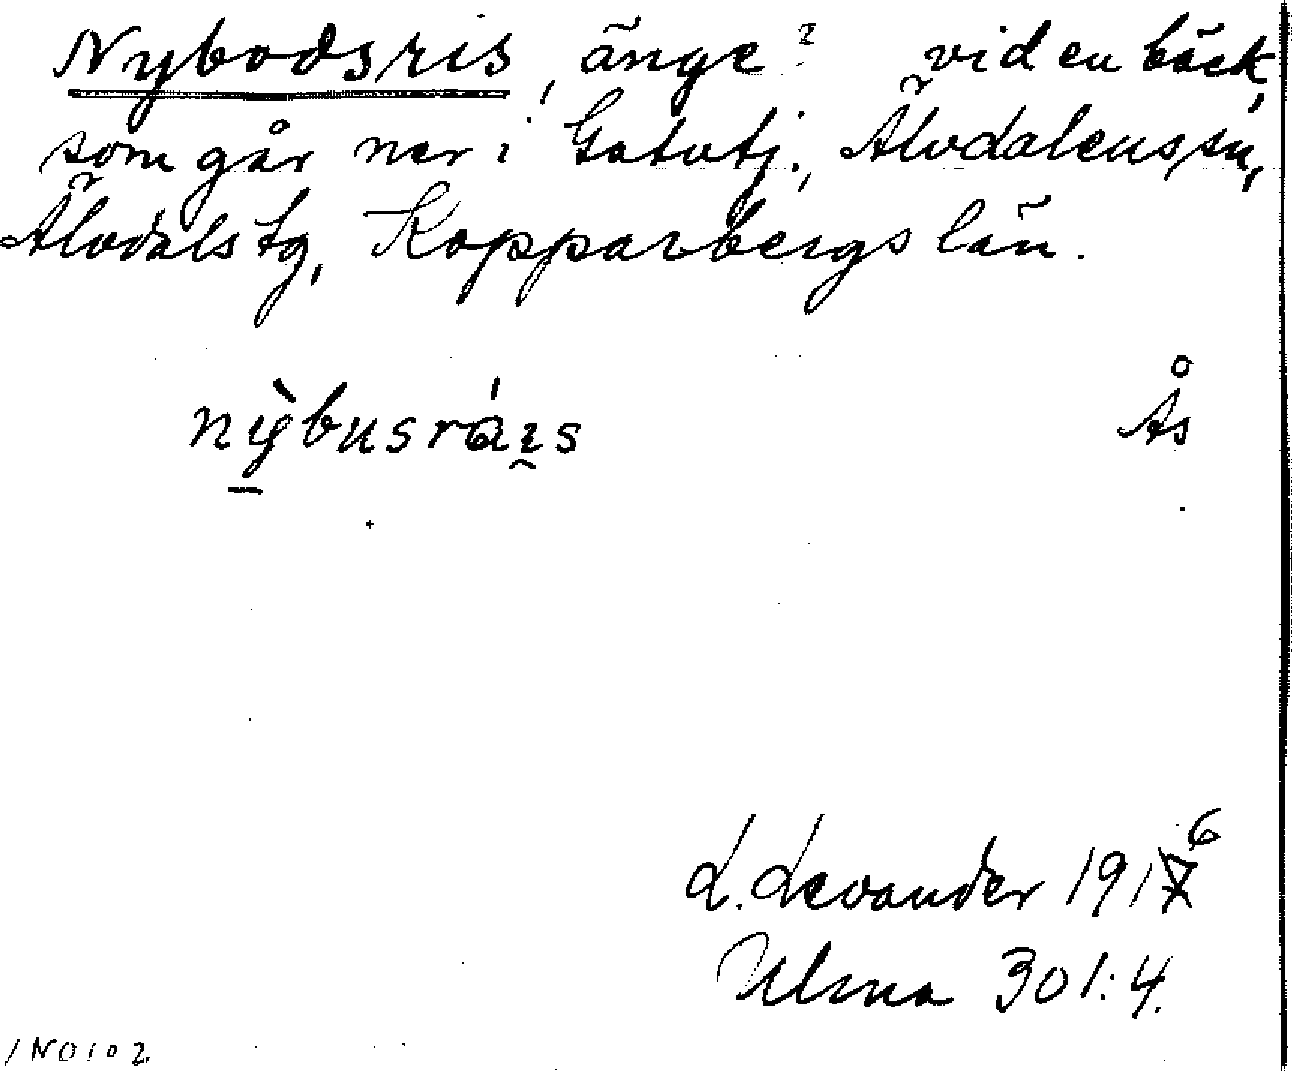 Nybodsris, änge? vid en bäck,
som går ner i Gatutj., Älvdalens sn,
Älvdals tg, Kopparbergs län.
nỳbusráıs Ås
L. Levander 1917 6
Ulma 301:4.